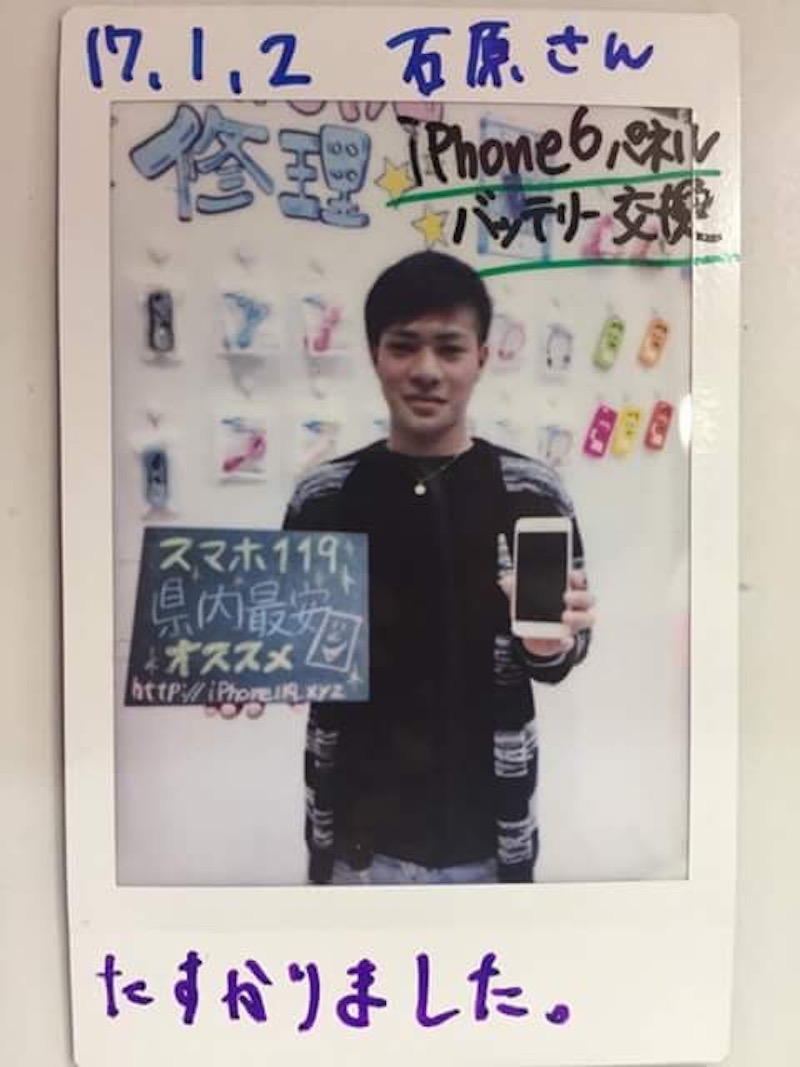 17.1.2 石原さん
修理
iPhone6パネル
バッテリー交換
スマホ119
県内最安
オススメ
http://iPhone119.xyz
たすかりました。